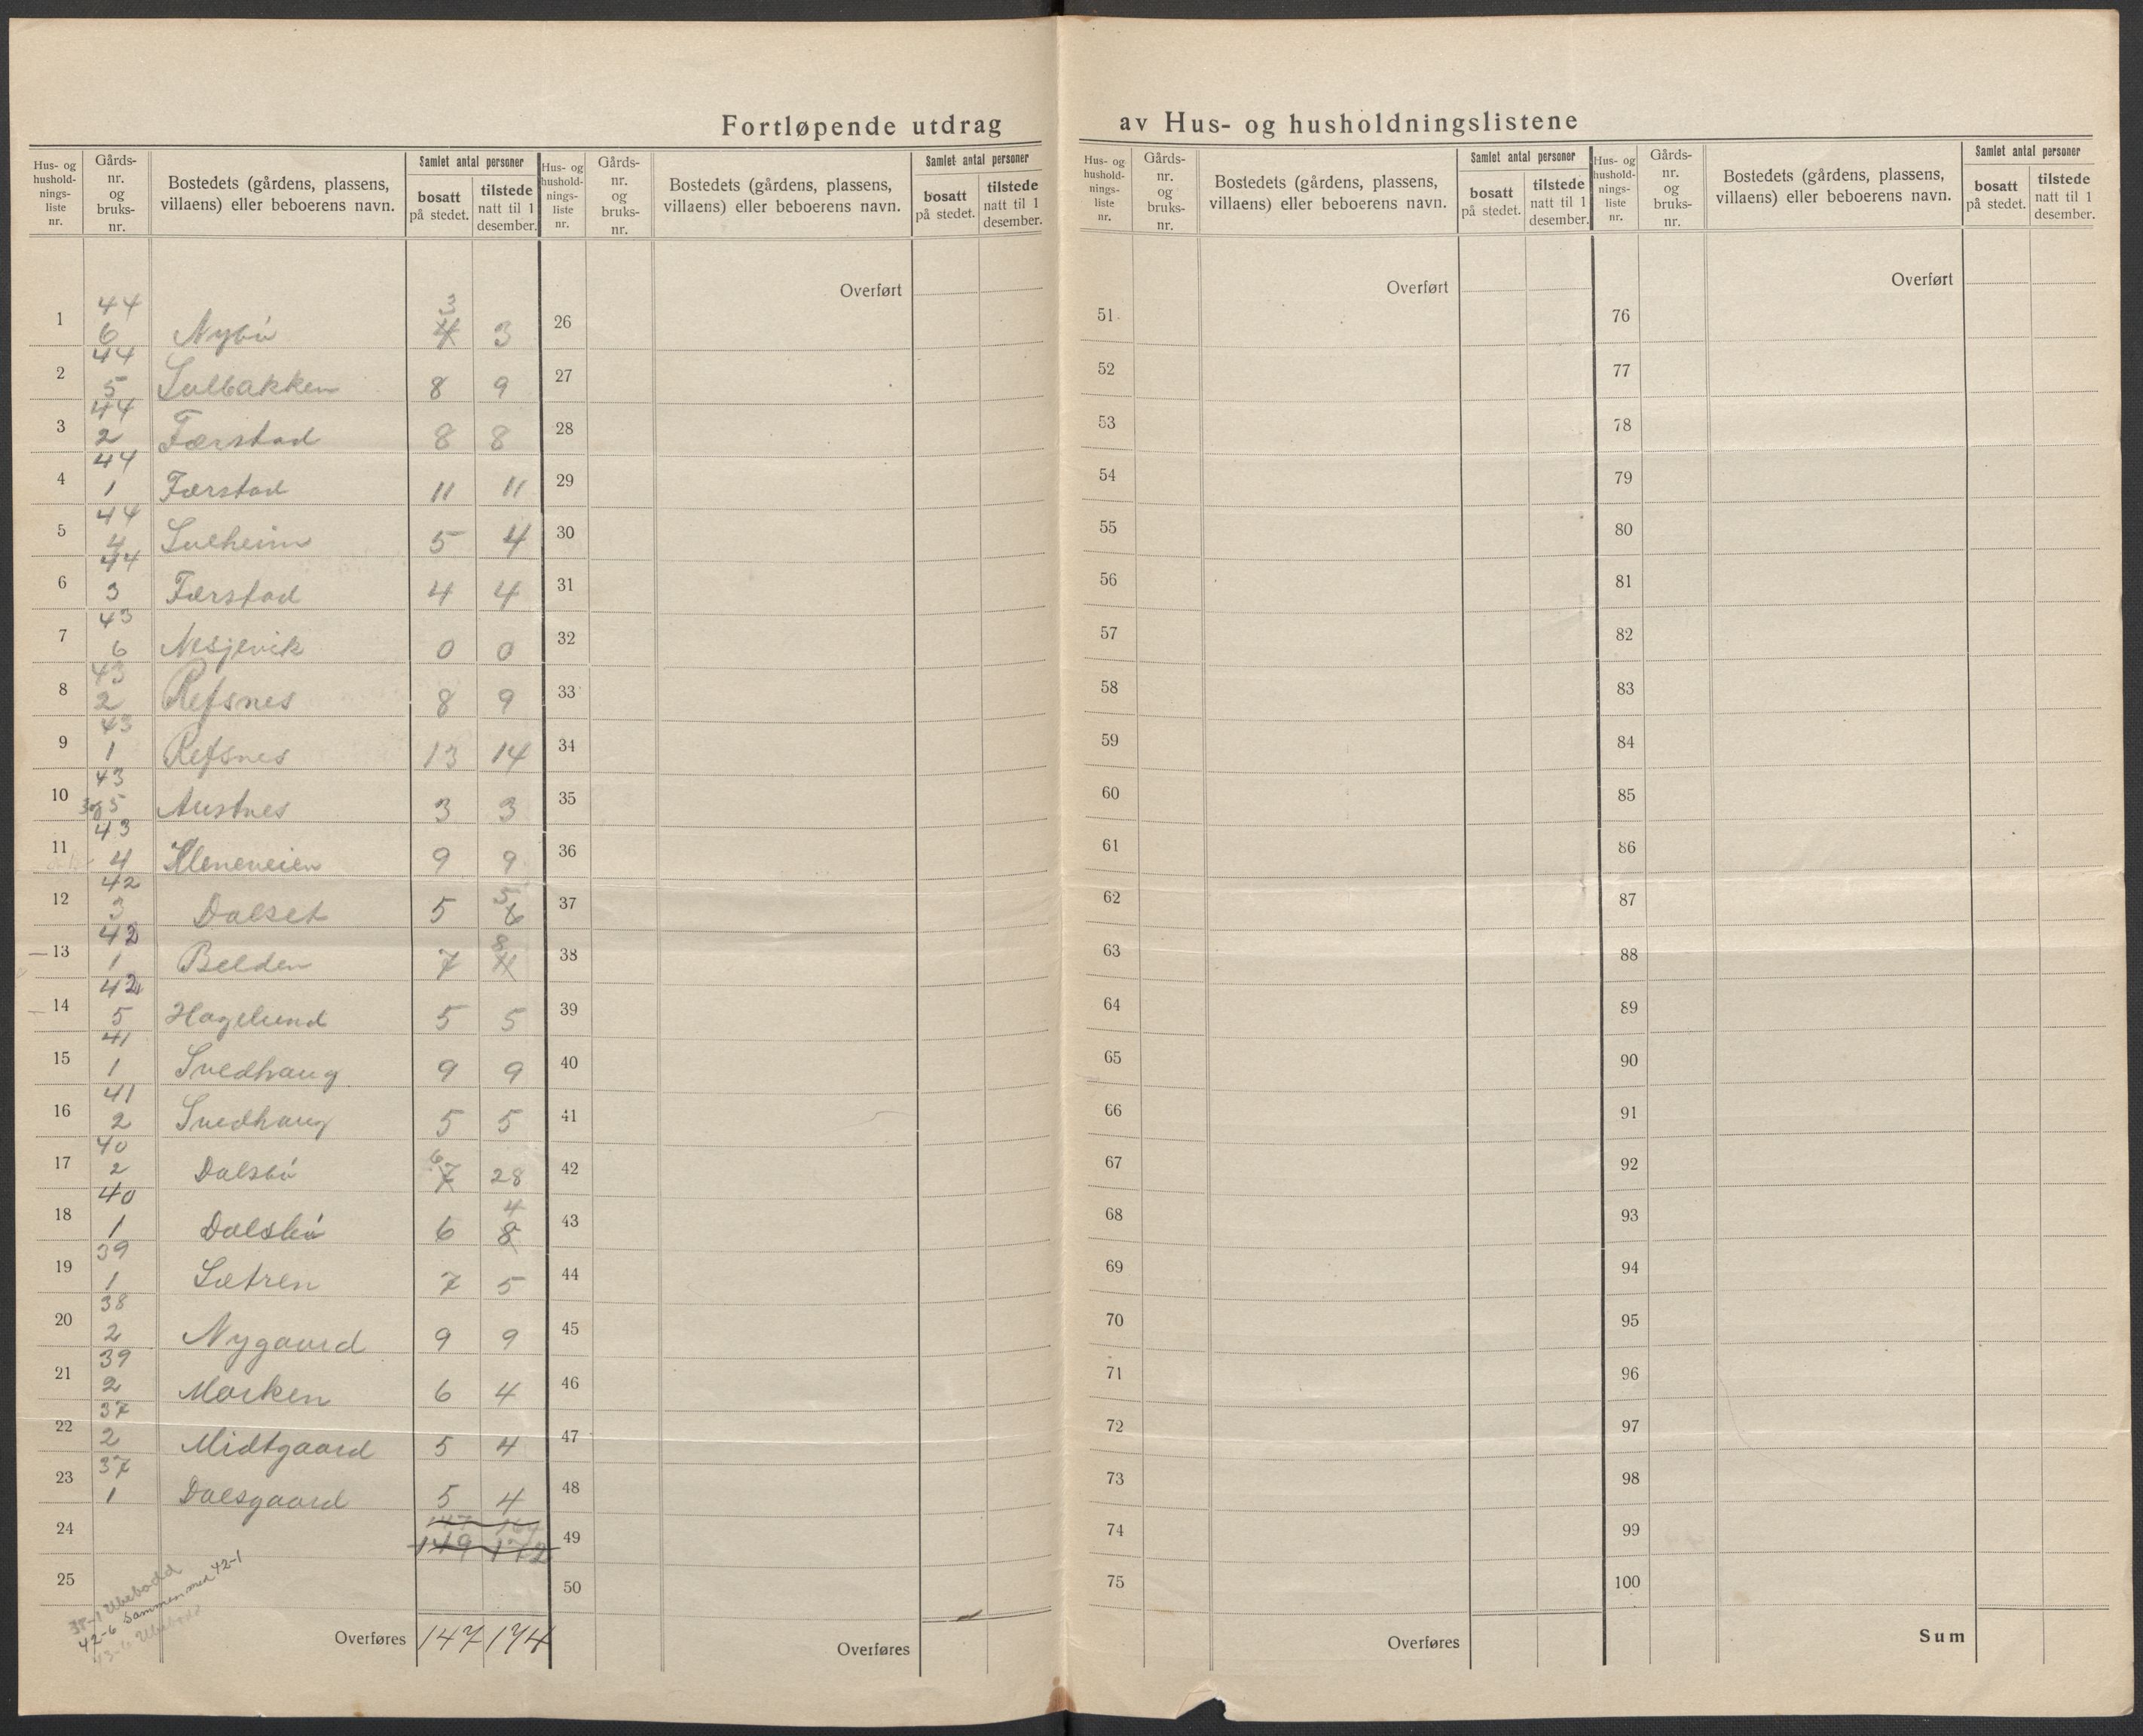 Fortløpende utdrag av Hus- og husholdningslistene
Hus- og hushold-nings-liste nr. | Gårds-nr. og bruks-nr. | Bostedets (gårdens, plassens, villaens) eller beboerens navn. | Samlet antal personer | bosatt på stedet. | tilstede natt til 1 desember.
Hus- og hushold-nings-liste nr. | Gårds-nr. og bruks-nr. | Bostedets (gårdens, plassens, villaens) eller beboerens navn. | Samlet antal personer | bosatt på stedet. | tilstede natt til 1 desember.
Hus- og hushold-nings-liste nr. | Gårds-nr. og bruks-nr. | Bostedets (gårdens, plassens, villaens) eller beboerens navn. | Samlet antal personer | bosatt på stedet. | tilstede natt til 1 desember.
Hus- og hushold-nings-liste nr. | Gårds-nr. og bruks-nr. | Bostedets (gårdens, plassens, villaens) eller beboerens navn. | Samlet antal personer | bosatt på stedet. | tilstede natt til 1 desember.
1 44 6 Nybö 4 3 3
2 44 5 Solbakken 8 9
3 44 2 Færstad 8 8
4 44 1 Færstad 11 11
5 44 4 Solheim 5 4
6 44 3 Færstad 4 4
7 43 6 Nesjevik 0 0
8 43 2 Refsnes 8 9
9 43 1 Refsnes 13 14
10 43 3og5 Austnes 3 3
11 43 4 Kleneveien 9 9
12 42 3 Dalset 5 6 5
13 42 1 Belden 7 4 8
14 42 5 Hagelund 5 5
15 41 1 Svedhaug 9 9
16 41 2 Svedhaug 5 5
17 40 2 Dalsbö 7 6 28
18 40 1 Dalsbö 6 8 4
19 39 1 Sætren 7 5
20 38 2 Nygaard 9 9
21 39 2 Morken 6 4
22 37 2 Midtgaard 5 4
23 37 1 Dalsgaard 5 4
24 149 172
25
38-1 Ubebodd
42-6 Sammen med 42-1
43-6 Ubebodd
Overføres 147 174
Overført
26
27
28
29
30
31
32
33
34
35
36
37
38
39
40
41
42
43
44
45
46
47
48
49
50
Overføres
Overført
51
52
53
54
55
56
57
58
59
60
61
62
63
64
65
66
67
68
69
70
71
72
73
74
75
Overføres
Overført
76
77
78
79
80
81
82
83
84
85
86
87
88
89
90
91
92
93
94
95
96
97
98
99
100
Sum